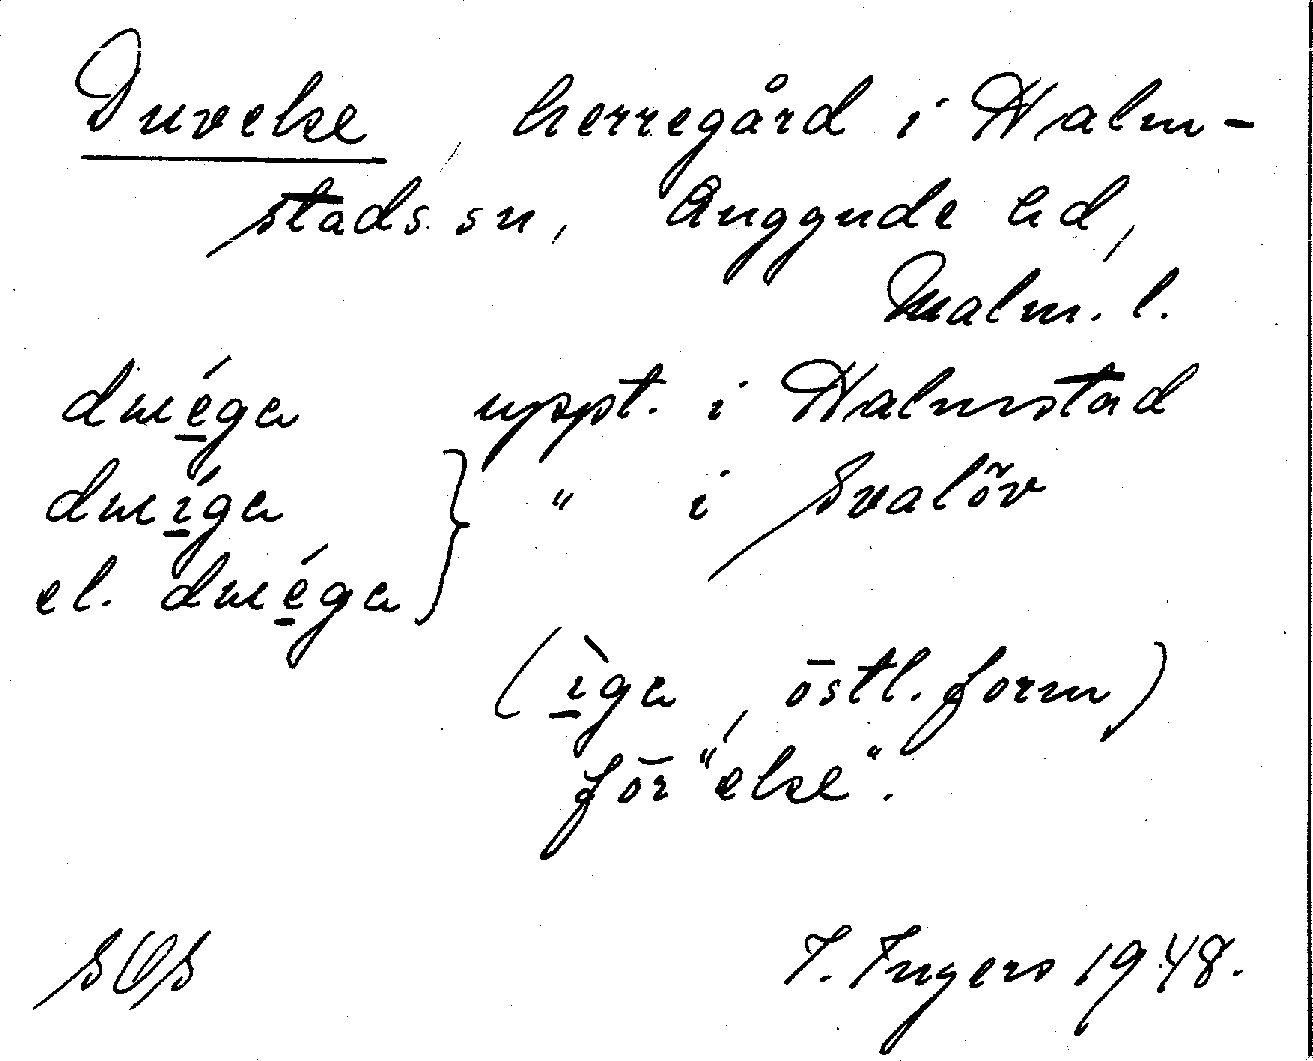 Duveke, herregård i Halm-
stads sn, Luggude hd,
Malm. l.
duéga uppt. i Halmstad
duíga } " i Svalöv
el. duéga
(ìga, östl. form)
för "eke".
SOS I. Ingers 1948.